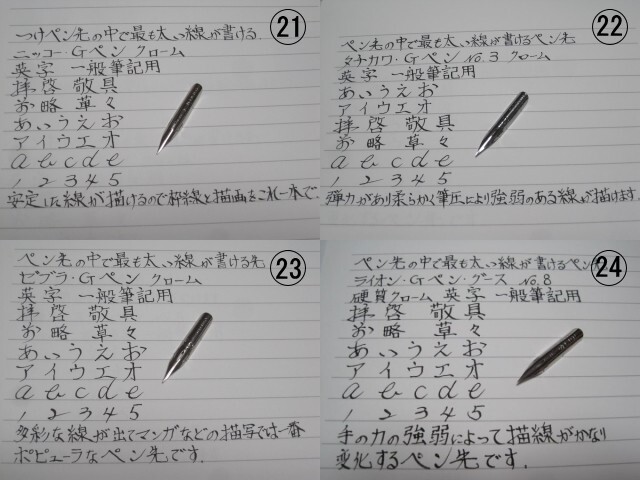 21
つけペン先の中で最も太い線が書ける
ニッコー・Gペン クローム
英字 一般筆記用
拝啓 敬具
前略 草々
あいうえお
アイウエオ
a b c d e
1 2 3 4 5
安定した線が描けるので枠線と描画をこれ一本で.
22
ペン先の中で最も太い線が書けるペン先
タチカワ・Gペン No.3 クローム
英字 一般筆記用
あいうえお
アイウエオ
拝啓 敬具
前略 草々
a b c d e
1 2 3 4 5
弾力があり柔らかく筆圧により強弱のある線が描けます.
23
ペン先の中で最も太い線が書ける先
ゼブラ・Gペン クローム
英字 一般筆記用
拝啓 敬具
前略 草々
あいうえお
アイウエオ
a b c d e
1 2 3 4 5
多彩な線が出てマンガなどの描写では一番
ポピューラなペン先です.
24
ペン先の中で最も太い線が書けるペン
ライオン・Gペン・グース No.8
硬質クローム 英字 一般筆記用
拝啓 敬具
前略 草々
あいうえお
アイウエオ
a b c d e
1 2 3 4 5
手の力の強弱によって描線がかなり
変化するペン先です.